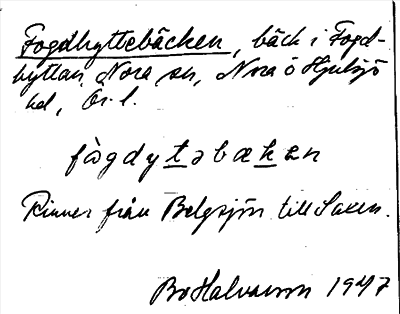 Fogdhyttebäcken, bäck i Fogd-
hyttan, Nora sn, Nora o Hjulsjö
hd, Ör. l.
fàgdytəbækən
Rinner från Belgsjön till Saxen.
Bo Halvarson 1947